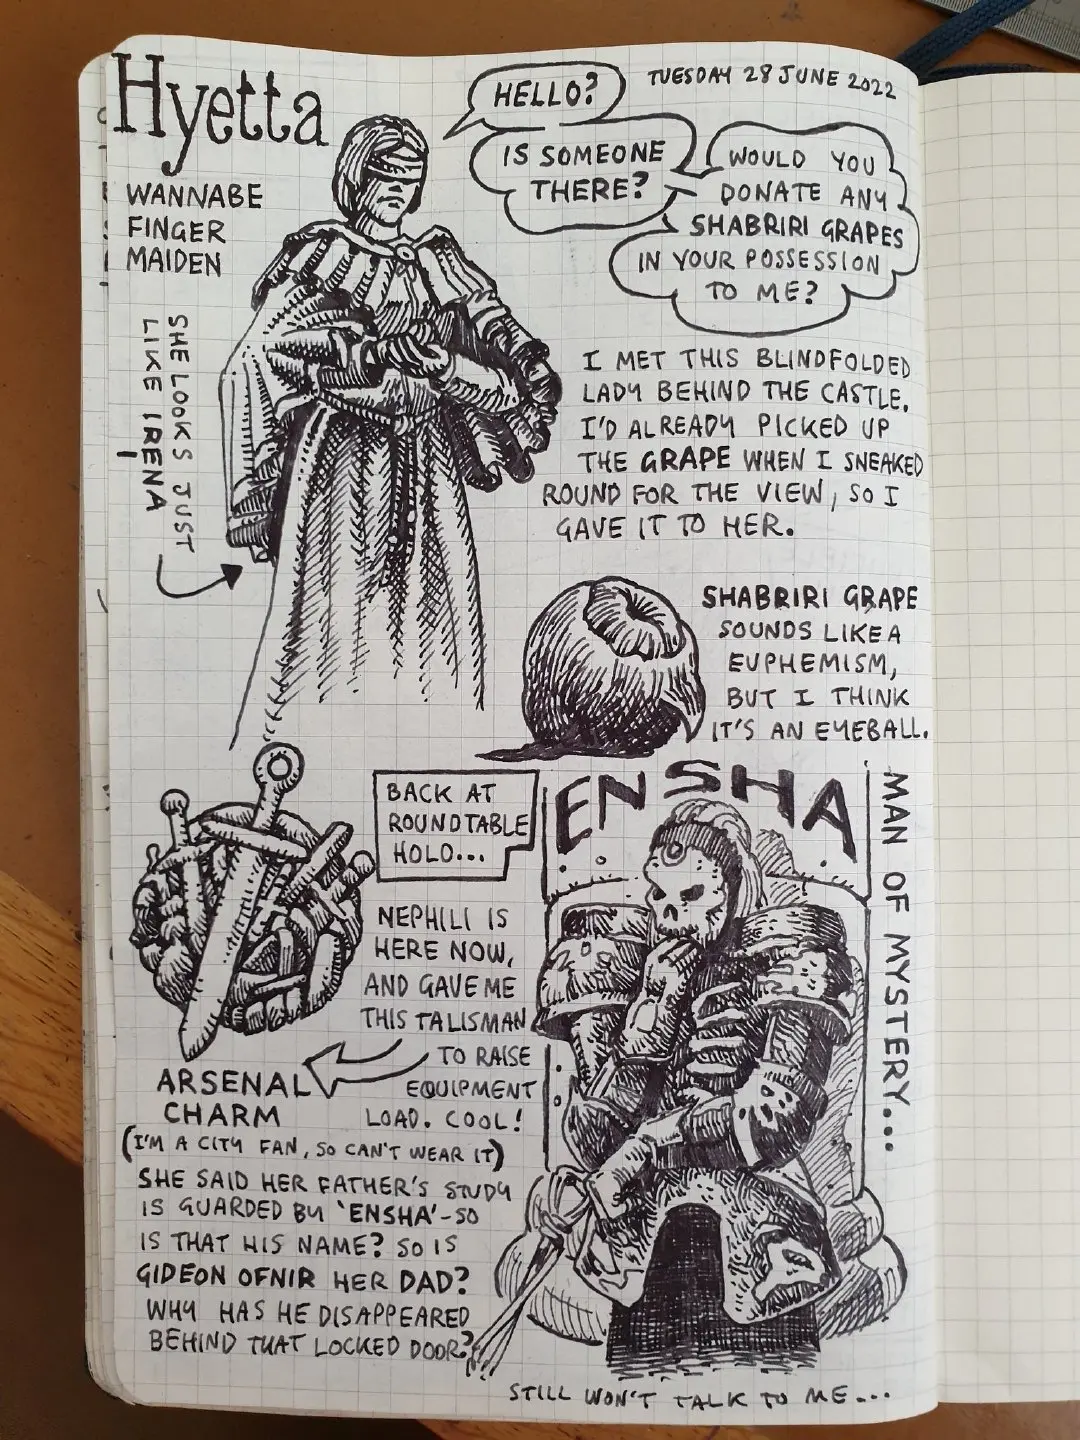 Hyetta
HELLO?
TUESDAY 28 JUNE 2022
IS SOMEONE
THERE?
WOULD YOU
DONATE ANY
SHABRIRI GRAPES
IN YOUR POSSESSION
TO ME?
WANNABE
FINGER
MAIDEN
SHE LOOKS JUST
LIKE IRENA
I MET THIS BLINDFOLDED
LADY BEHIND THE CASTLE.
I'D ALREADY PICKED UP
THE GRAPE WHEN I SNEAKED
ROUND FOR THE VIEW, SO I
GAVE IT TO HER.
SHABRIRI GRAPE
SOUNDS LIKE A
EUPHEMISM,
BUT I THINK
IT'S AN EYEBALL.
BACK AT
ROUNDTABLE
HOLD...
NEPHILI IS
HERE NOW,
AND GAVE ME
THIS TALISMAN
TO RAISE
EQUIPMENT
LOAD. COOL!
ARSENAL
CHARM
(I'M A CITY FAN, SO CAN'T WEAR IT)
SHE SAID HER FATHER'S STUDY
IS GUARDED BY 'ENSHA' - SO
IS THAT HIS NAME? SO IS
GIDEON OFNIR HER DAD?
WHY HAS HE DISAPPEARED
BEHIND THAT LOCKED DOOR?
ENSHA
MAN OF MYSTERY...
STILL WON'T TALK TO ME...